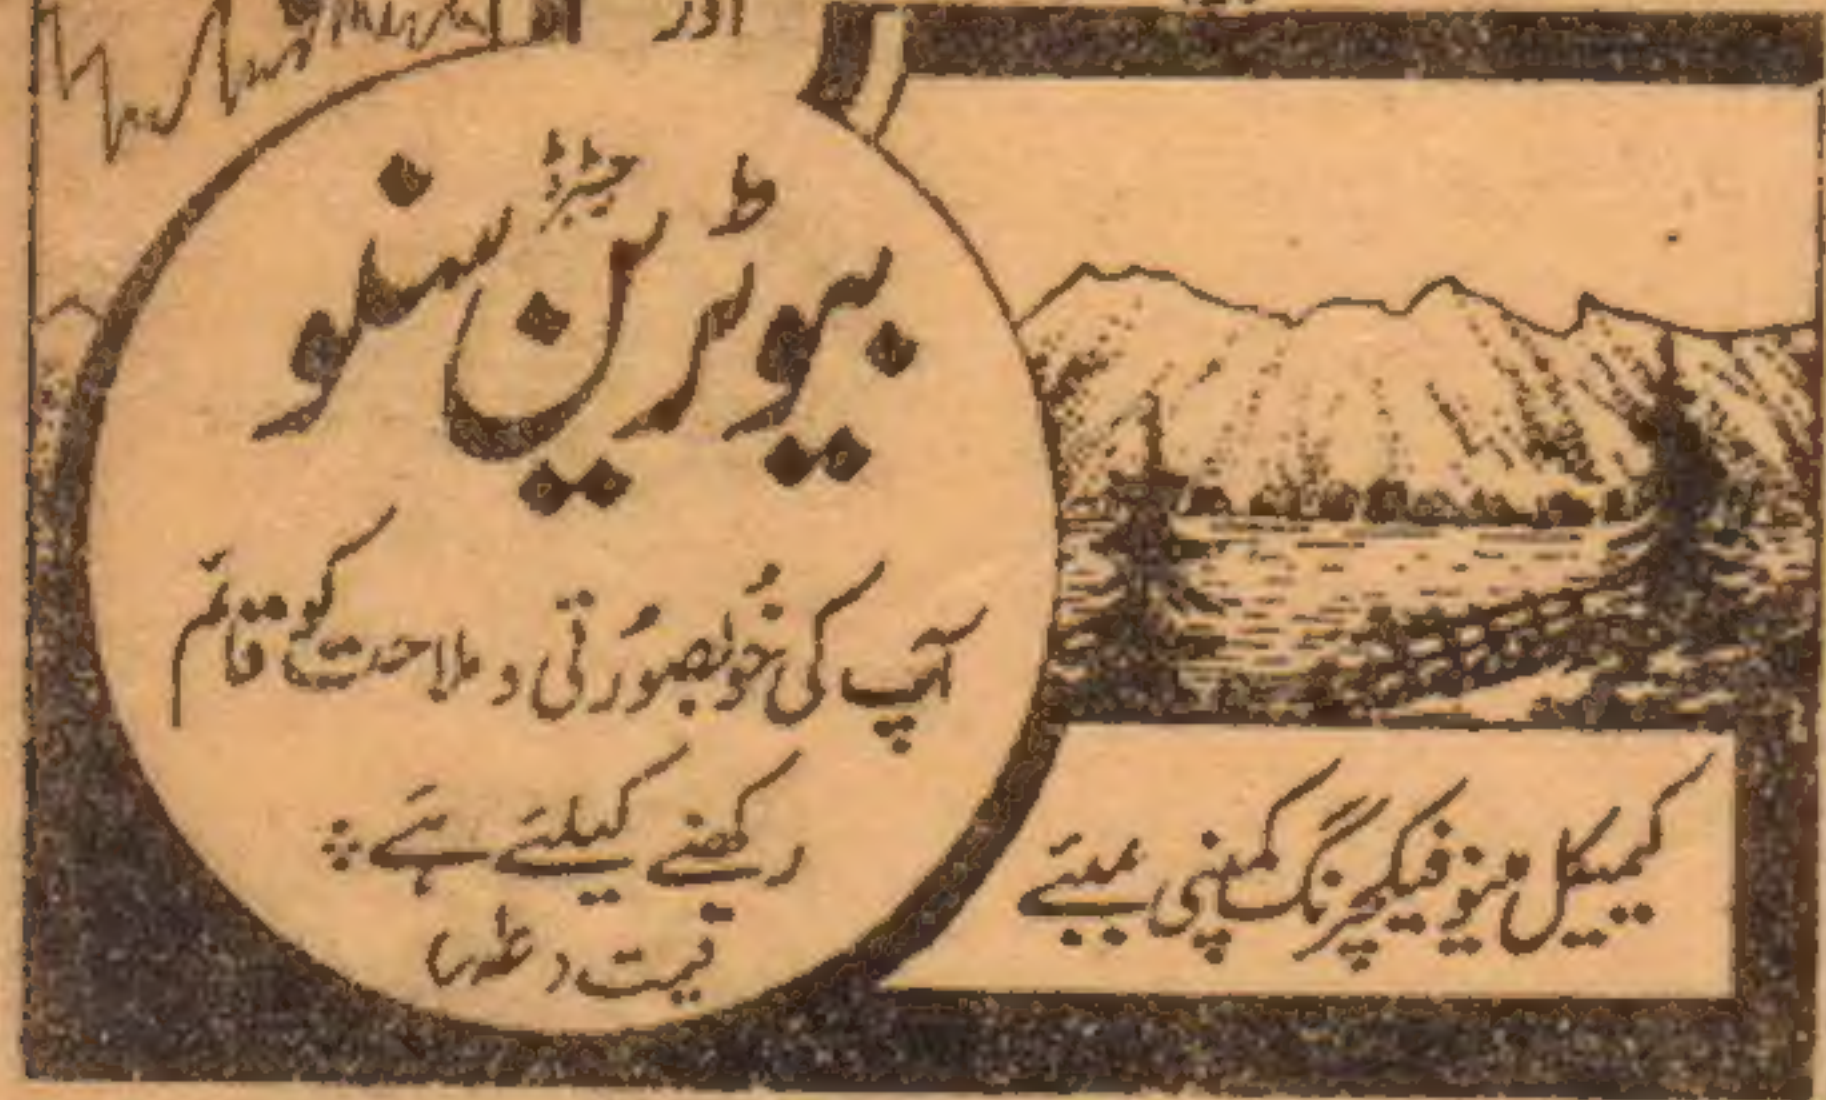 اور
بیوٹرین سنلو
رجسٹرڈ
آپ کی خوبصورتی و ملاحت کو قائم
رکھنے کیلئے ہے
قیمت
کیمیکل مینوفیکچرنگ کمپنی بمبئے